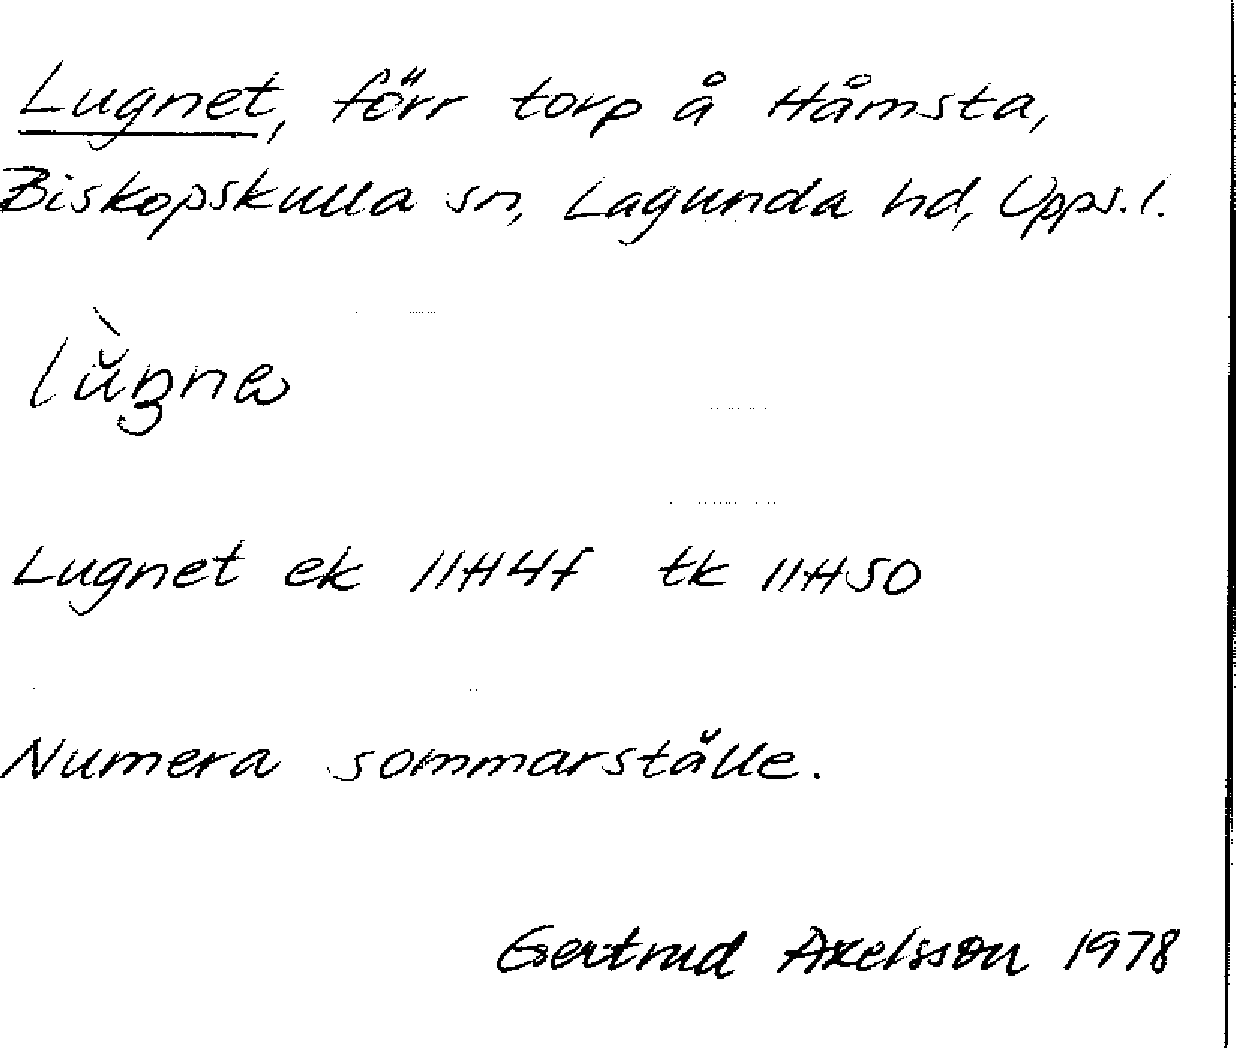 Lugnet, förr torp å Håmsta,
Biskopskulla sn, Lagunda hd, Upps. l.
Lugnet ek 11H4f tk 11HSO
Numera sommarställe.
Gertrud Axelsson 1978